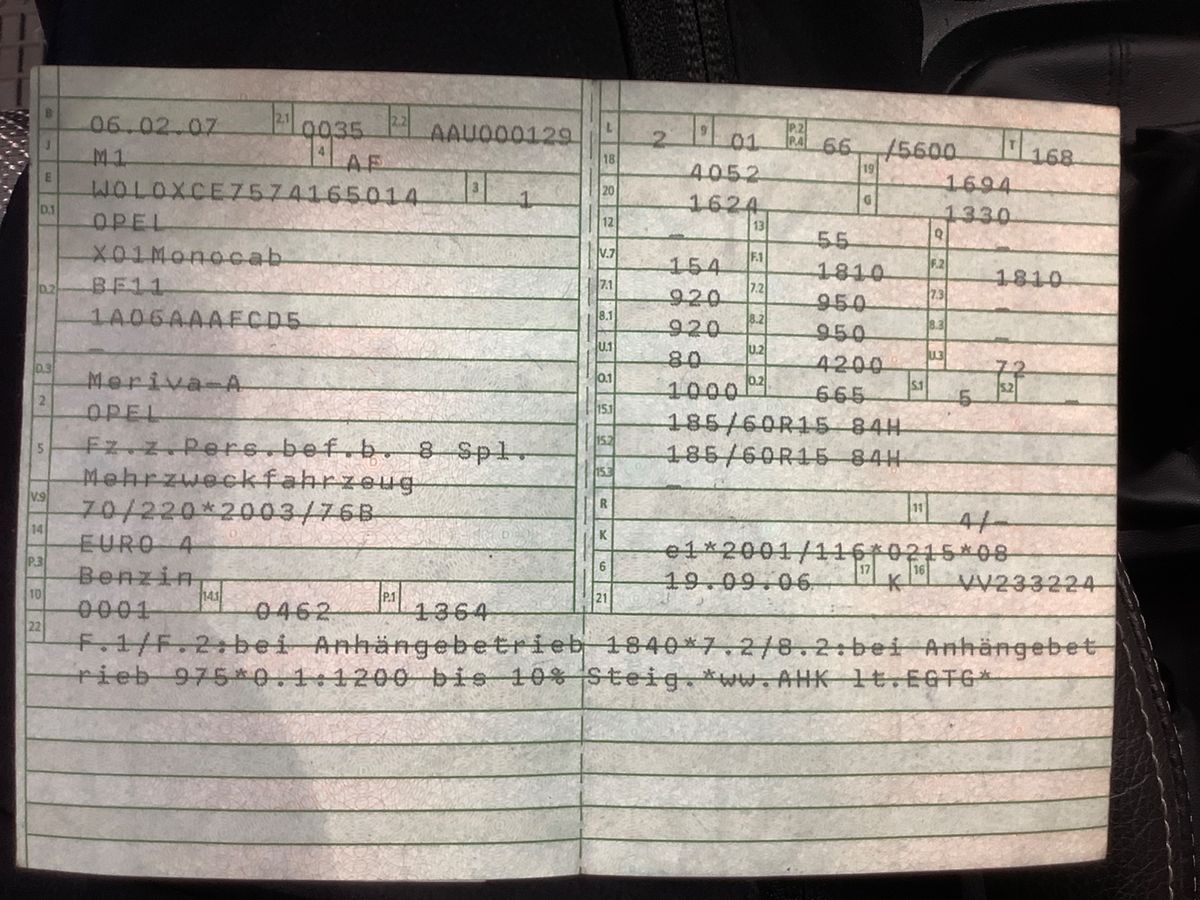 B 06.02.07 2.1 0035 2.2 AAU000129
J M1 4 AF
E W0L0XCE7574165014 3 1
D.1 OPEL
X01Monocab
D.2 BF11
1A06AAAFCD5
–
D.3 Meriva-A
2 OPEL
5 Fz.z.Pers.bef.b. 8 Spl.
Mehrzweckfahrzeug
V.9 70/220*2003/76B
14 EURO 4
P.3 Benzin
10 0001 14.1 0462 P.1 1364
L 2 9 01 P.2 P.4 66 /5600 T 168
18 4052 19 1694
20 1624 G 1330
12 – 13 55 Q –
V.7 154 F.1 1810 F.2 1810
7.1 920 7.2 950 7.3 –
8.1 920 8.2 950 8.3 –
U.1 80 U.2 4200 U.3 72
O.1 1000 O.2 665 S.1 5 S.2 –
15.1 185/60R15 84H
15.2 185/60R15 84H
15.3 –
R 11 4/-
K e1*2001/116*0215*08
6 19.09.06 17 K 16 VV233224
21
22 F.1/F.2:bei Anhängebetrieb 1840*7.2/8.2:bei Anhängebet
rieb 975*O.1:1200 bis 10% Steig.*ww.AHK lt.EGTG*